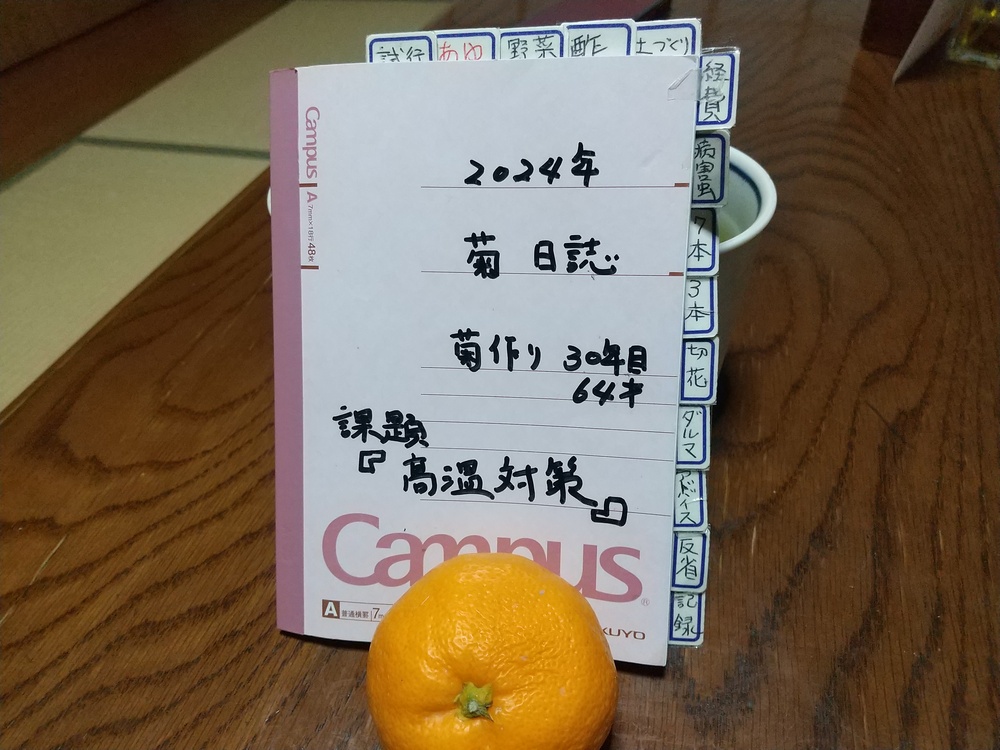 試行 あゆ 野菜 酢 土づくり
経費
病害虫
7本
3本
切花
ダルマ
アドバイス
反省
記録
Campus
A 7mm×18行 48枚
2024年
菊 日誌
菊作り 30年目
64才
課題
『高温対策』
Campus
A 普通横罫 7m
KUYO